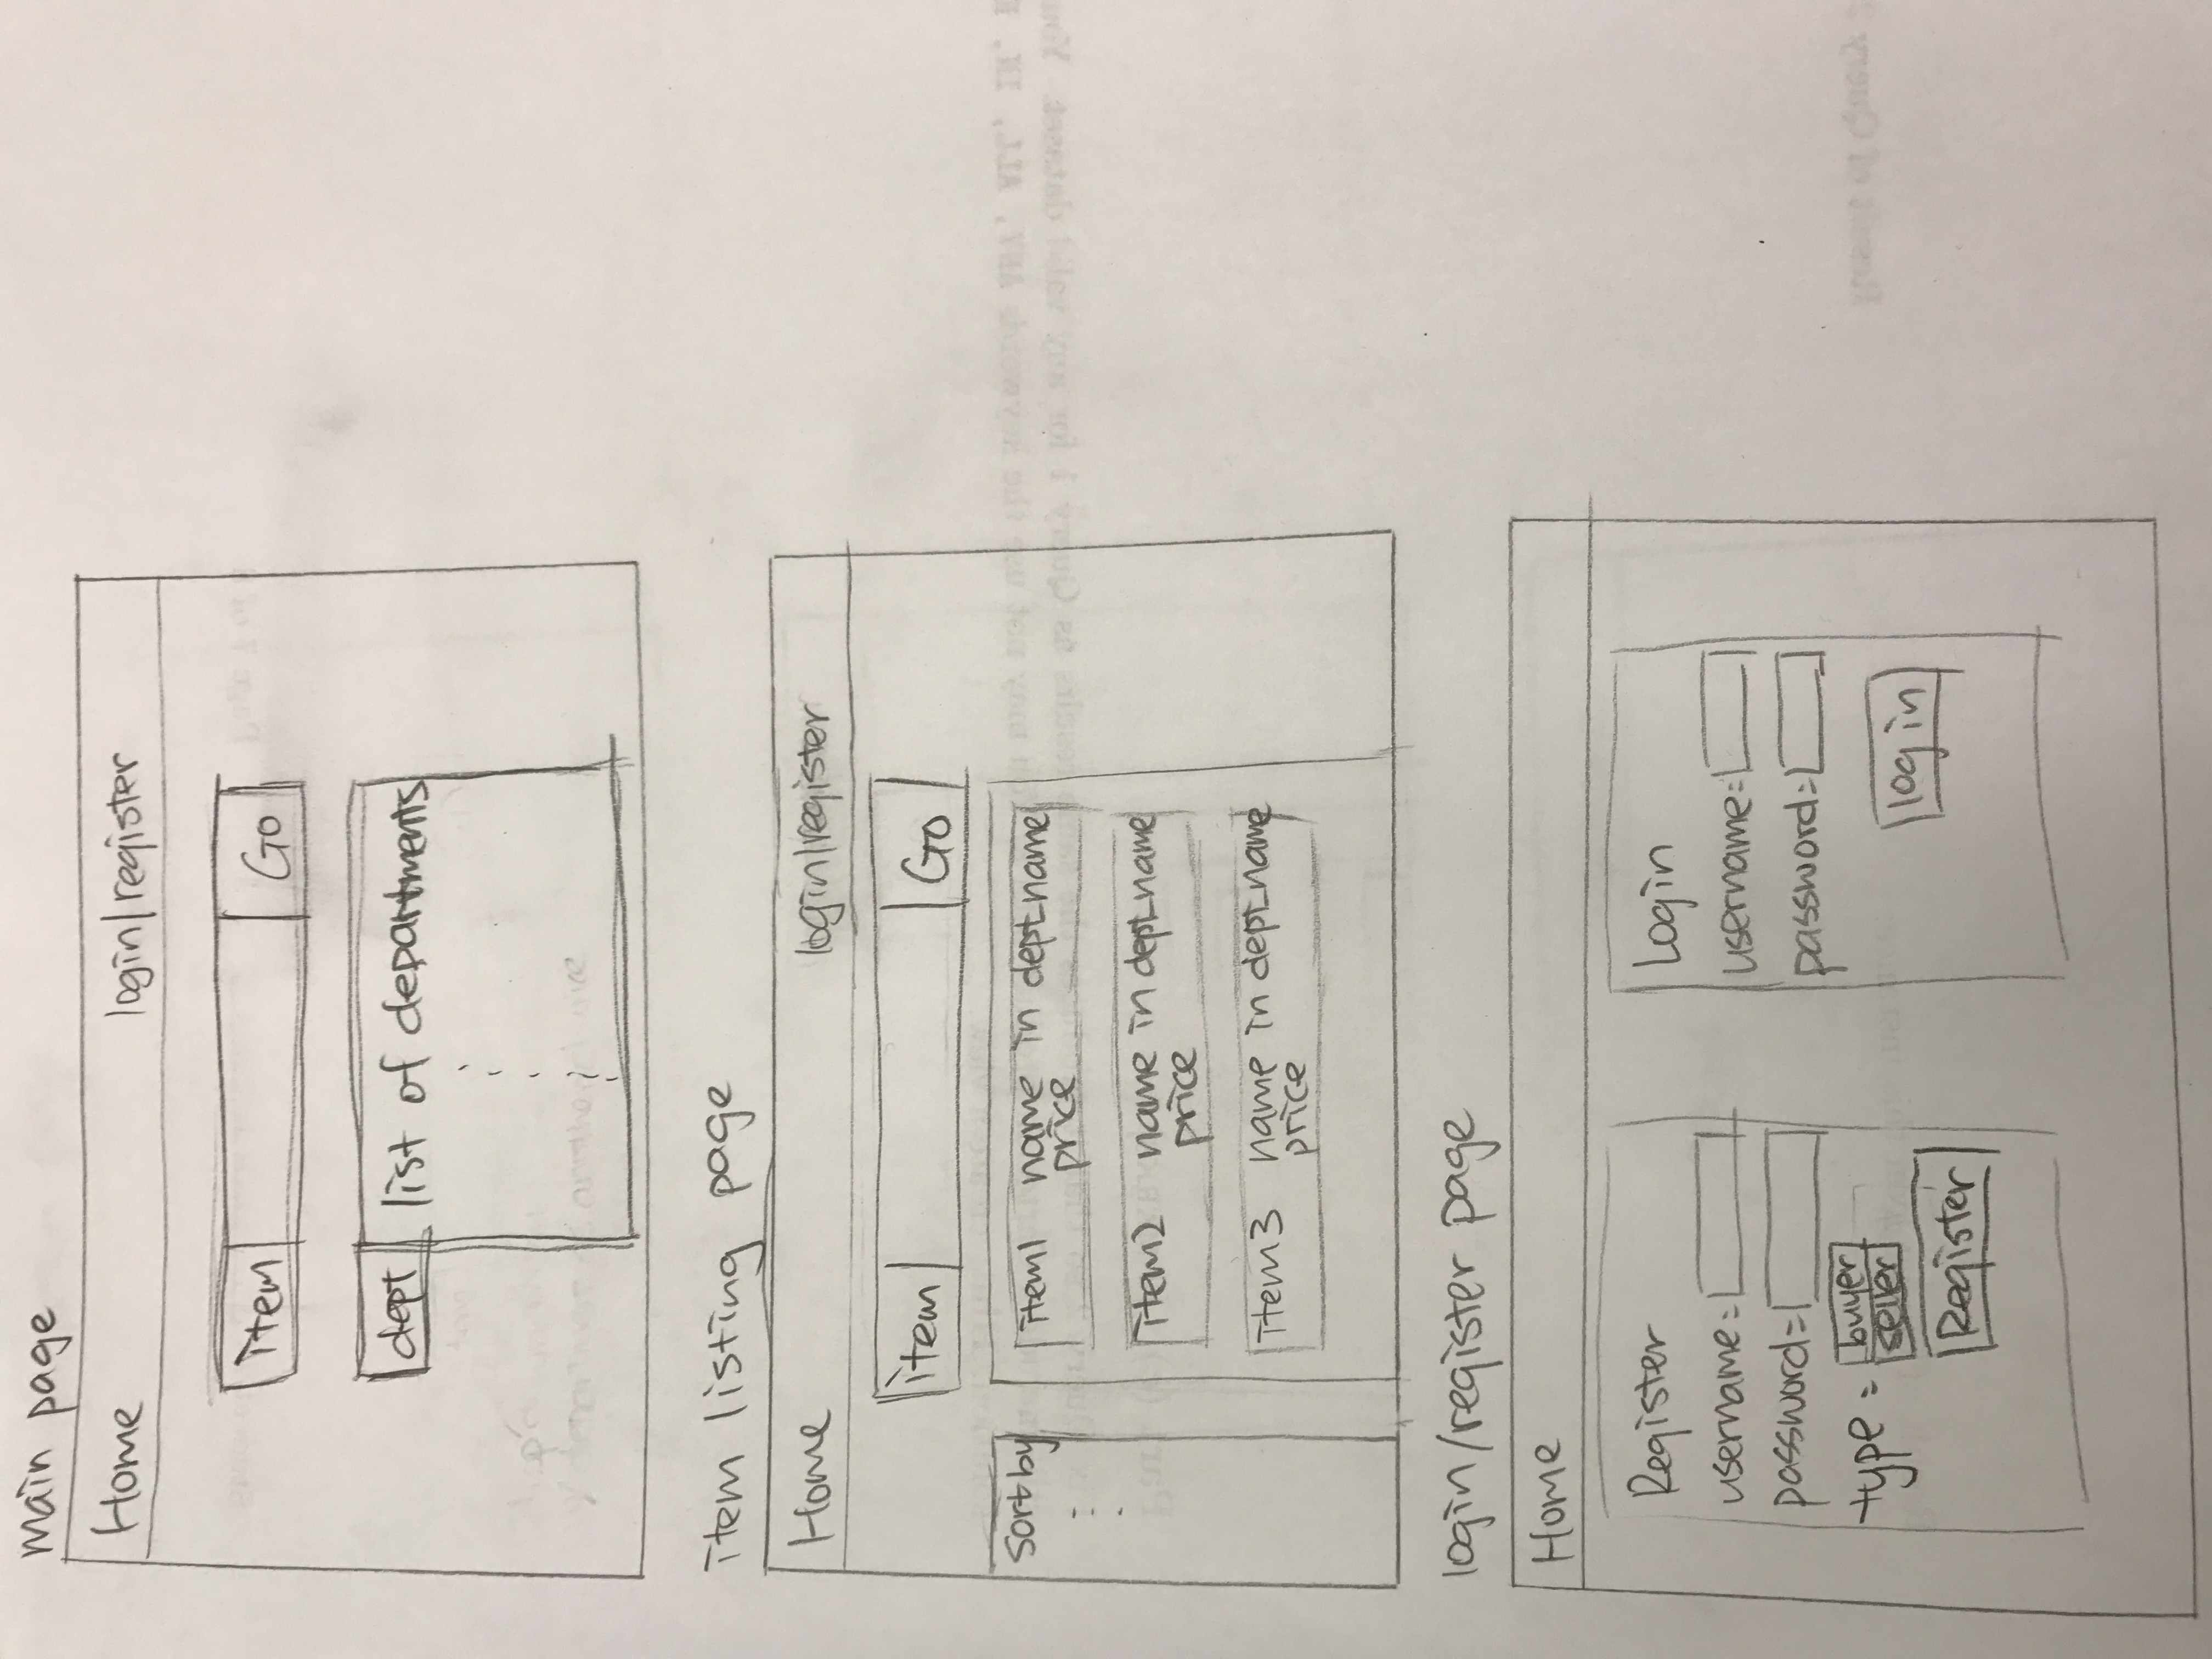 main page
Home login/register
item Go
dept list of departments
item listing page
Home login/register
item Go
sort by
item1 name in dept_name
price
item2 name in dept_name
price
item3 name in dept_name
price
login/register page
Home
Register
username:
password:
type: buyer
seller
Register
Login
username:
password:
login